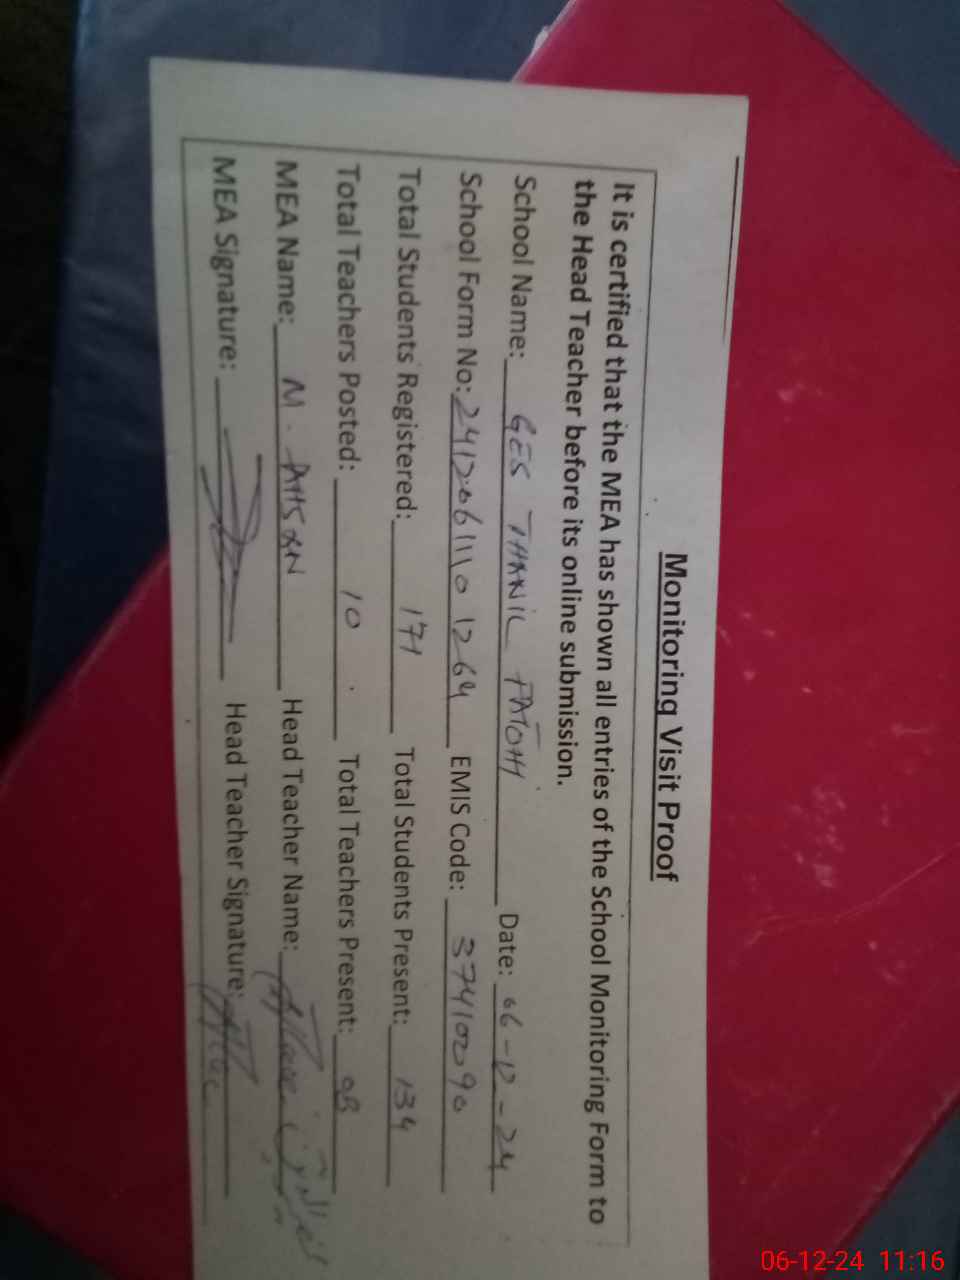 Monitoring Visit Proof
It is certified that the MEA has shown all entries of the School Monitoring Form to
the Head Teacher before its online submission.
School Name: GES THANIL FATOHI Date: 06-12-24
School Form No: 24120611101264 EMIS Code: 37410090
Total Students Registered: 171 Total Students Present: 134
Total Teachers Posted: 10 Total Teachers Present: 08
MEA Name: M. AHSAN Head Teacher Name:
MEA Signature: Head Teacher Signature:
06-12-24 11:16